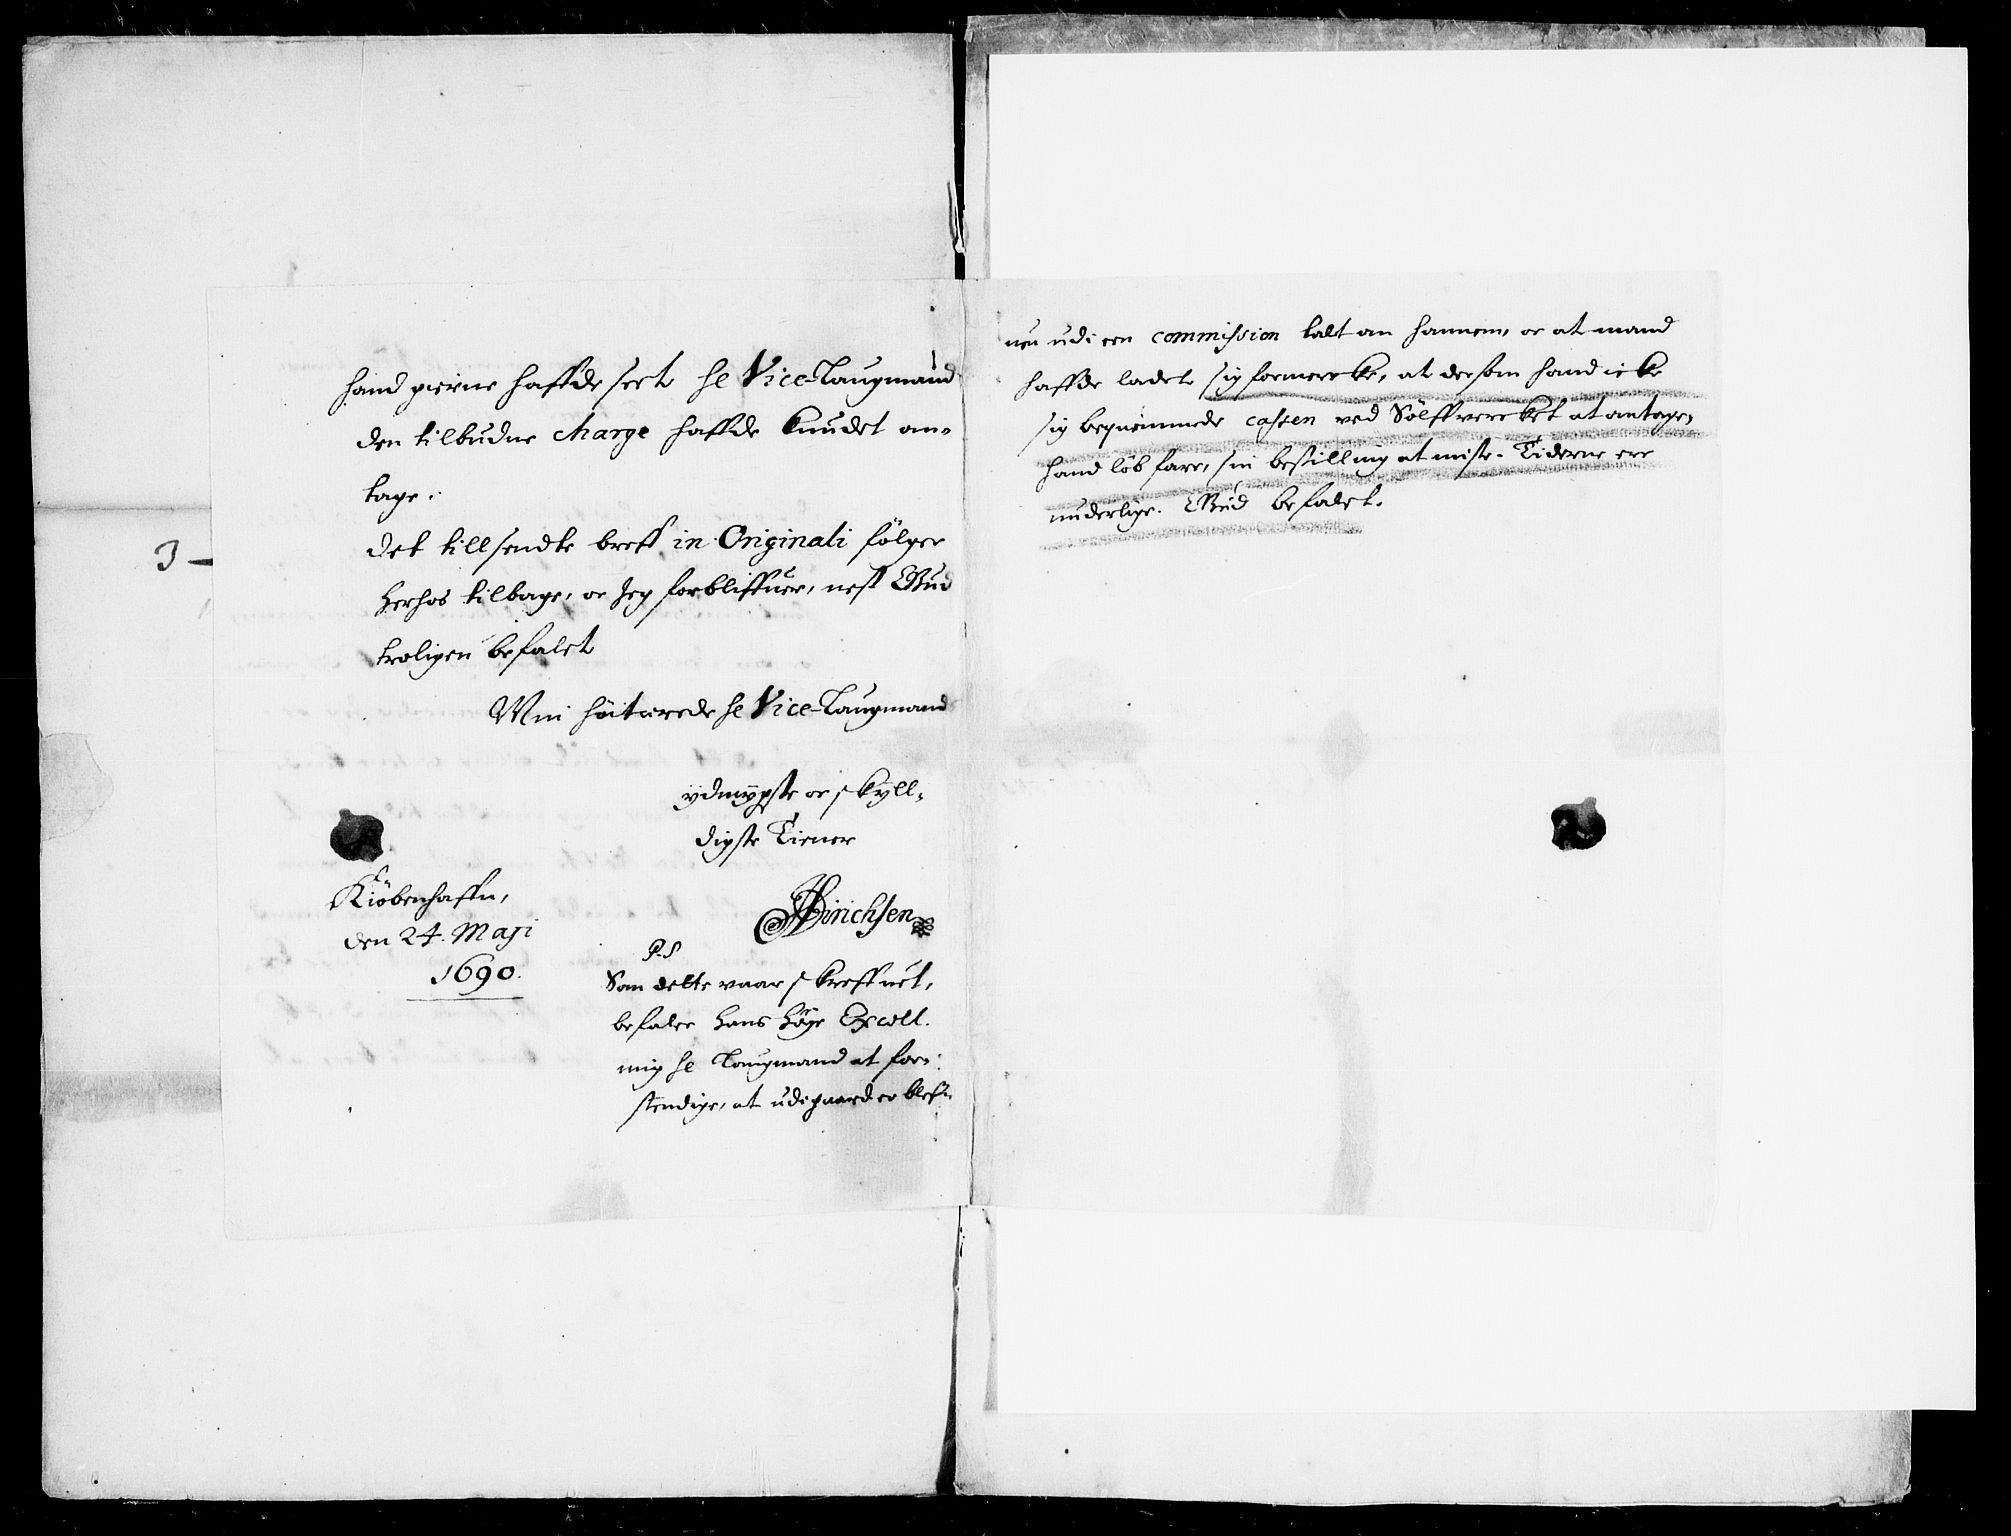 hand gierne haffde seet he Vice-Laugmand
den tilbudne charge haffde kundet an-
tage.
Det tillsendte breff in Originali fölger
herhos tilbage, oc Jeg forbliffuer, nest Gud
troligen befalet
Min höitærede he Vice-Laugmand
ÿdmÿgste oc skÿll-
digste Tiener
3 -
Hinrichsen
Kiöbenhaffn,
den 24. Maji
1690.
P.S
Som dette vaar skreffuet,
befaler Hans Höge Excell.
mig he Laugmand at for-
stendige, at udi gaard er blef-
uen udi een commission talt om hannem, oc at mand
haffde ladet sig formercke, at dersom hand icke
sig beqvemmede cassen ved Sölffvercket at antage,
hand löb fare, sin bestilling at miste. Tiderne ere
underlige. Gud befalet.